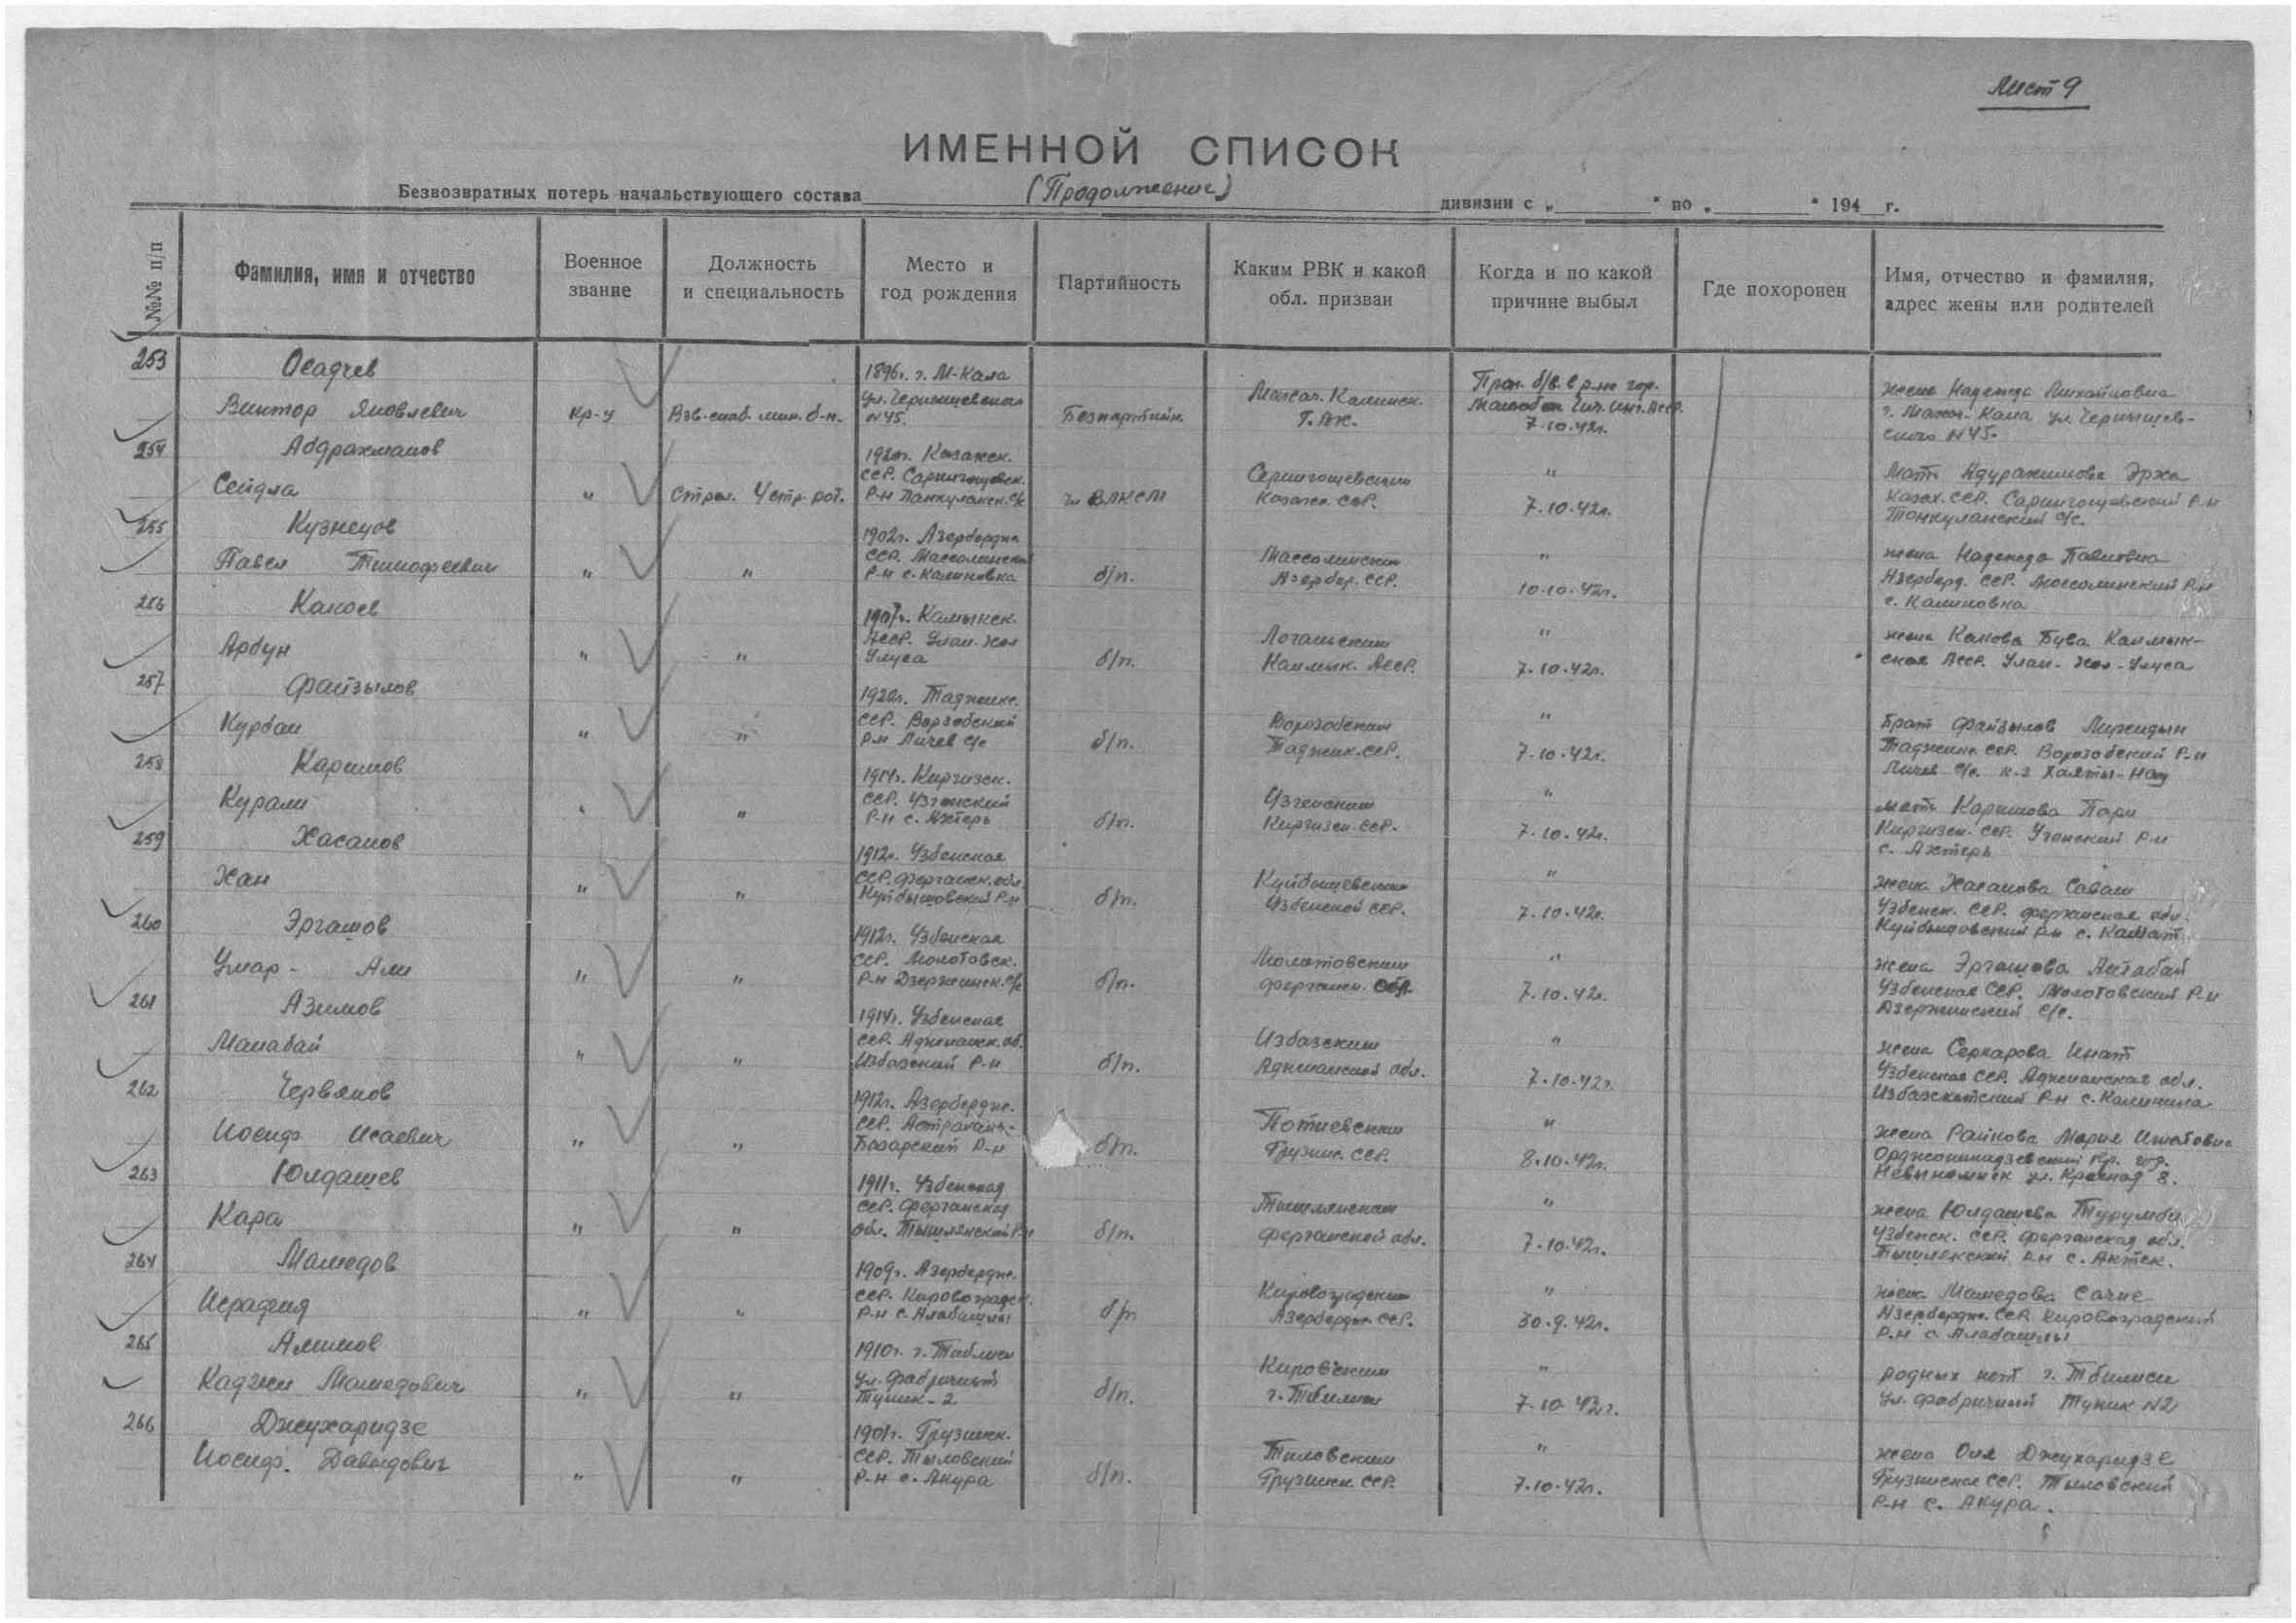 Лист 9
ИМЕННОЙ СПИСОК
Безвозвратных потерь начальствующего состава (Продолжение) дивизии с „ “ по „ “ 194 г.
№№ п/п
Фамилия, имя и отчество
Военное звание
Должность и специальность
Место и год рождения
Партийность
Каким РВК и какой обл. призван
Когда и по какой причине выбыл
Где похоронен
Имя, отчество и фамилия, адрес жены или родителей
253
Осадчев
Виктор Яковлевич
кр-ц
Взв. снаб. мин. б-н.
1896г. г. М-Кала
ул. Чернышевская
N45.
Безпартийн.
Махач. Калинск.
Проп. б/в. в р-не гор.
7.10.42г.
жена Надежда Михайловна
г. Махач-Кала ул Чернышев-
ского N45.
254
Абдрахманов
Сейдла
"
Стрел. 4 стр. рот.
1920г. Казахск.
ССР.
Р-н с/с
чл ВЛКСМ
Казахс. ССР.
"
7.10.42г.
Мать
Казах. ССР. Р-н
с/с.
255
Кузнецов
Павел Тимофеевич
"
"
1902г. Азербердж
ССР. Массолинский
Р-н с. Калиновка
б/п.
Массолинским
Азербер. ССР.
"
10.10.42г.
жена Надежда Павловна
Азерберд. ССР. Массолинский Р-н
с. Калиновка
256
Каноев
Арбун
"
"
1907г. Калмыкск.
АССР. Улан-Хол
Улуса
б/п.
Калмык. АССР.
"
7.10.42г.
жена Канова Бува Калмык-
ская АССР. Улан-Хол-Улуса
257
Файзылов
Курбан
"
"
1920г. Таджикс.
ССР. Варзобский
Р-н Личев с/с
б/п.
Ворозобским
Таджик. ССР.
"
7.10.42г.
Брат Файзылов
Таджикс ССР. Ворозобский Р-н
Личев с/с. к-з Хаяты-Нау
258
Каримов
Курали
"
"
1914г. Киргизск.
ССР. Узгенский
Р-н с. Ахтерь
б/п.
Узгенским
Киргизск. ССР.
"
7.10.42г.
мать Каримова Пари
Киргизск. ССР. Узгенский Р-н
с. Ахтерь
259
Хасанов
Хан
"
"
1912г. Узбекская
ССР. Ферганск. обл.
Куйбышовский Р-н
б/п.
Куйбышевским
Узбекской ССР.
"
7.10.42г.
жена Хасанова
Узбекск. ССР. Ферганская обл.
Куйбышовский Р-н с.
260
Эргашов
Умар-Али
"
"
1912г. Узбекская
ССР. Молотовск.
Р-н Дзержинск. с/с
б/п.
Молотовским
Ферганск. обл.
"
7.10.42г.
жена Эргашова Айтабай
Узбекская ССР. Молотовский Р-н
Дзержинский с/с.
261
Азимов
Манабай
"
"
1914г. Узбекская
ССР. Аджианск. об.
Избазский Р-н
б/п.
Избазским
Аджианской обл.
"
7.10.42г.
жена Серкарова Инат
Узбекская ССР. Аджианская обл.
Избазскетский Р-н с. Калинина
262
Червяков
Иосиф Исаевич
"
"
1912г. Азербердж.
ССР. Астрахань-
Базарский Р-н
б/п.
Потиевским
Грузинс. ССР.
"
8.10.42г.
жена Райкова Мария
Орджоникидзевский Кр. гор.
Невыномиск ул. Красная 8.
263
Юлдашев
Кара
"
"
1911г. Узбекская
ССР. Ферганская
обл. Тышлянский Р-н
б/п.
Тышлянским
Ферганской обл.
"
7.10.42г.
жена Юлдашева Турумби
Узбекск. ССР. Ферганская обл.
Тышлянский Р-н с. Актек.
264
Мамедов
Исрафил
"
"
1909г. Азербердж.
ССР. Кировоградск.
Р-н с. Алабашлы
б/п
Кировоградским
Азербердж ССР.
"
30.9.42г.
жена Мамедова Сачие
Азербердж. ССР. Кировоградский
Р-н с. Алабашлы
265
Алимов
Каджи Мамедович
"
"
1910г. г. Тбилиси
ул. Фабричный
Тупик-2
б/п.
Кировским
г. Тбилиси
"
7.10.42г.
родных нет г. Тбилиси
ул. Фабричный Тупик N2
266
Джухаридзе
Иосиф Давыдович
"
"
1901г. Грузинск.
ССР. Тыловский
Р-н с. Акура
б/п.
Тиловским
Грузинск ССР.
"
7.10.42г.
жена Оля Джухаридзе
Грузинская ССР. Тыловский
Р-н с. Акура.